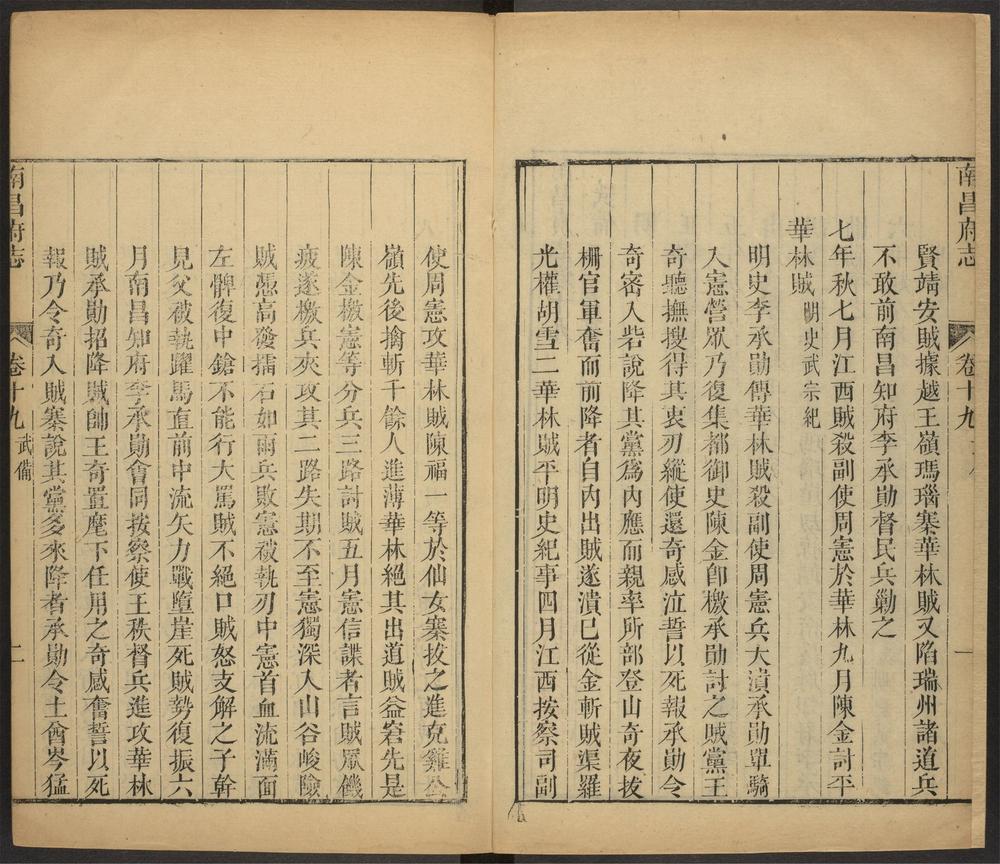 南昌府志 卷十九 一
賢靖安賊據越王嶺瑪瑙寨華林賊又陷瑞州諸道兵
不敢前南昌知府李承勛督民兵勦之
七年秋七月江西賊殺副使周憲於華林九月陳金討平
華林賊明史武宗紀
明史李承勛傳華林賊殺副使周憲兵大潰承勛單騎
入憲營眾乃復集都御史陳金卽檄承勛討之賊黨王
奇聽撫搜得其衷刃縱使還奇感泣誓以死報承勛令
奇密入砦說降其黨爲內應而親率所部登山奇夜拔
柵官軍奮而前降者自內出賊遂潰已從金斬賊渠羅
光權胡雪二華林賊平明史紀事四月江西按察司副
使周憲攻華林賊陳福一等於仙女寨拔之進克雞公
嶺先後擒斬千餘人進薄華林絕其出道賊益窘先是
陳金檄憲等分兵三路討賊五月憲信諜者言賊眾饑
疲遂檄兵夾攻其二路失期不至憲獨深入山谷峻險
賊憑高發擂石如雨兵敗憲被執刃中憲首血流滿面
左髀復中鎗不能行大罵賊不絕口賊怒支解之子幹
見父被執躍馬直前中流矢力戰墮崖死賊勢復振六
月南昌知府李承勛會同按察使王秩督兵進攻華林
賊承勛招降賊帥王奇置麾下任用之奇感奮誓以死
報乃令奇入賊寨說其黨多來降者承勛令土酋岑猛
南昌府志 卷十九 武備 二